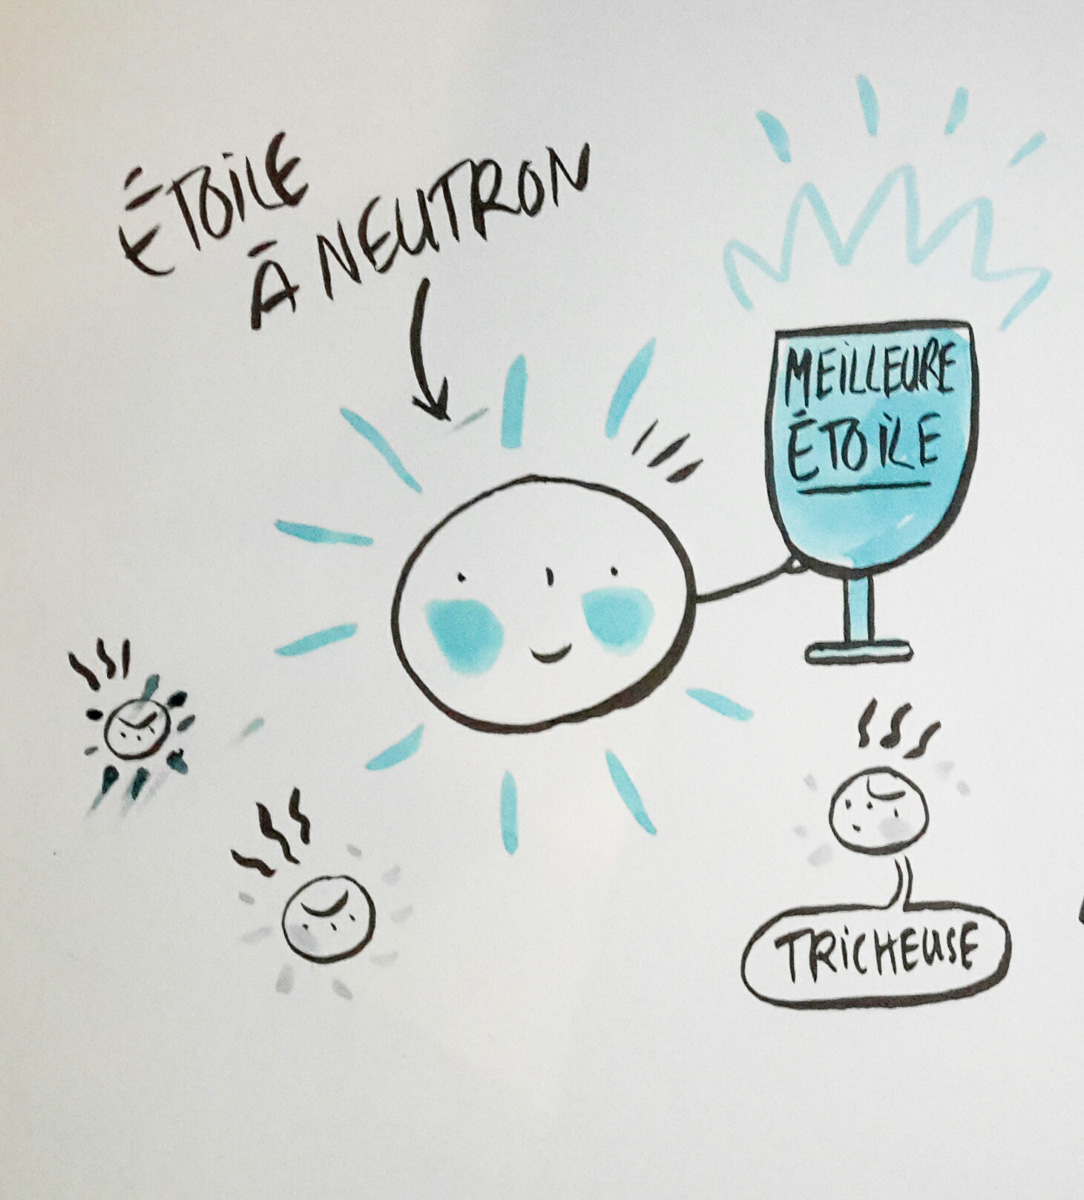 ÉTOILE
À NEUTRON
MEILLEURE
ÉTOILE
TRICHEUSE